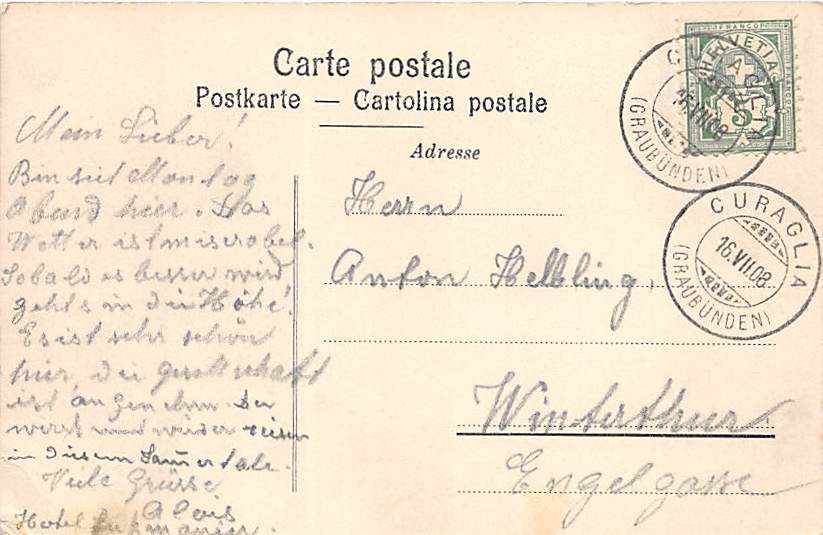 Carte postale
Postkarte — Cartolina postale
Adresse
FRANCO
HELVETIA
5
CURAGLIA
16.VII.08
(GRAUBÜNDEN)
CURAGLIA
16.VII.08
(GRAUBÜNDEN)
Mein Lieber!
Bin seit Montag
Abend hier. Das
Wetter ist miserabel.
Sobald es besser wird
gehts in die Höhe!
Es ist sehr schön
hier, die Gesellschaft
ist angenehm. Der
wirst und wieder reisen
in diesem Tale.
Viele Grüsse
Alois
Hotel Lukmanier.
Herrn
Anton Helbling,
Winterthur
Engelgasse